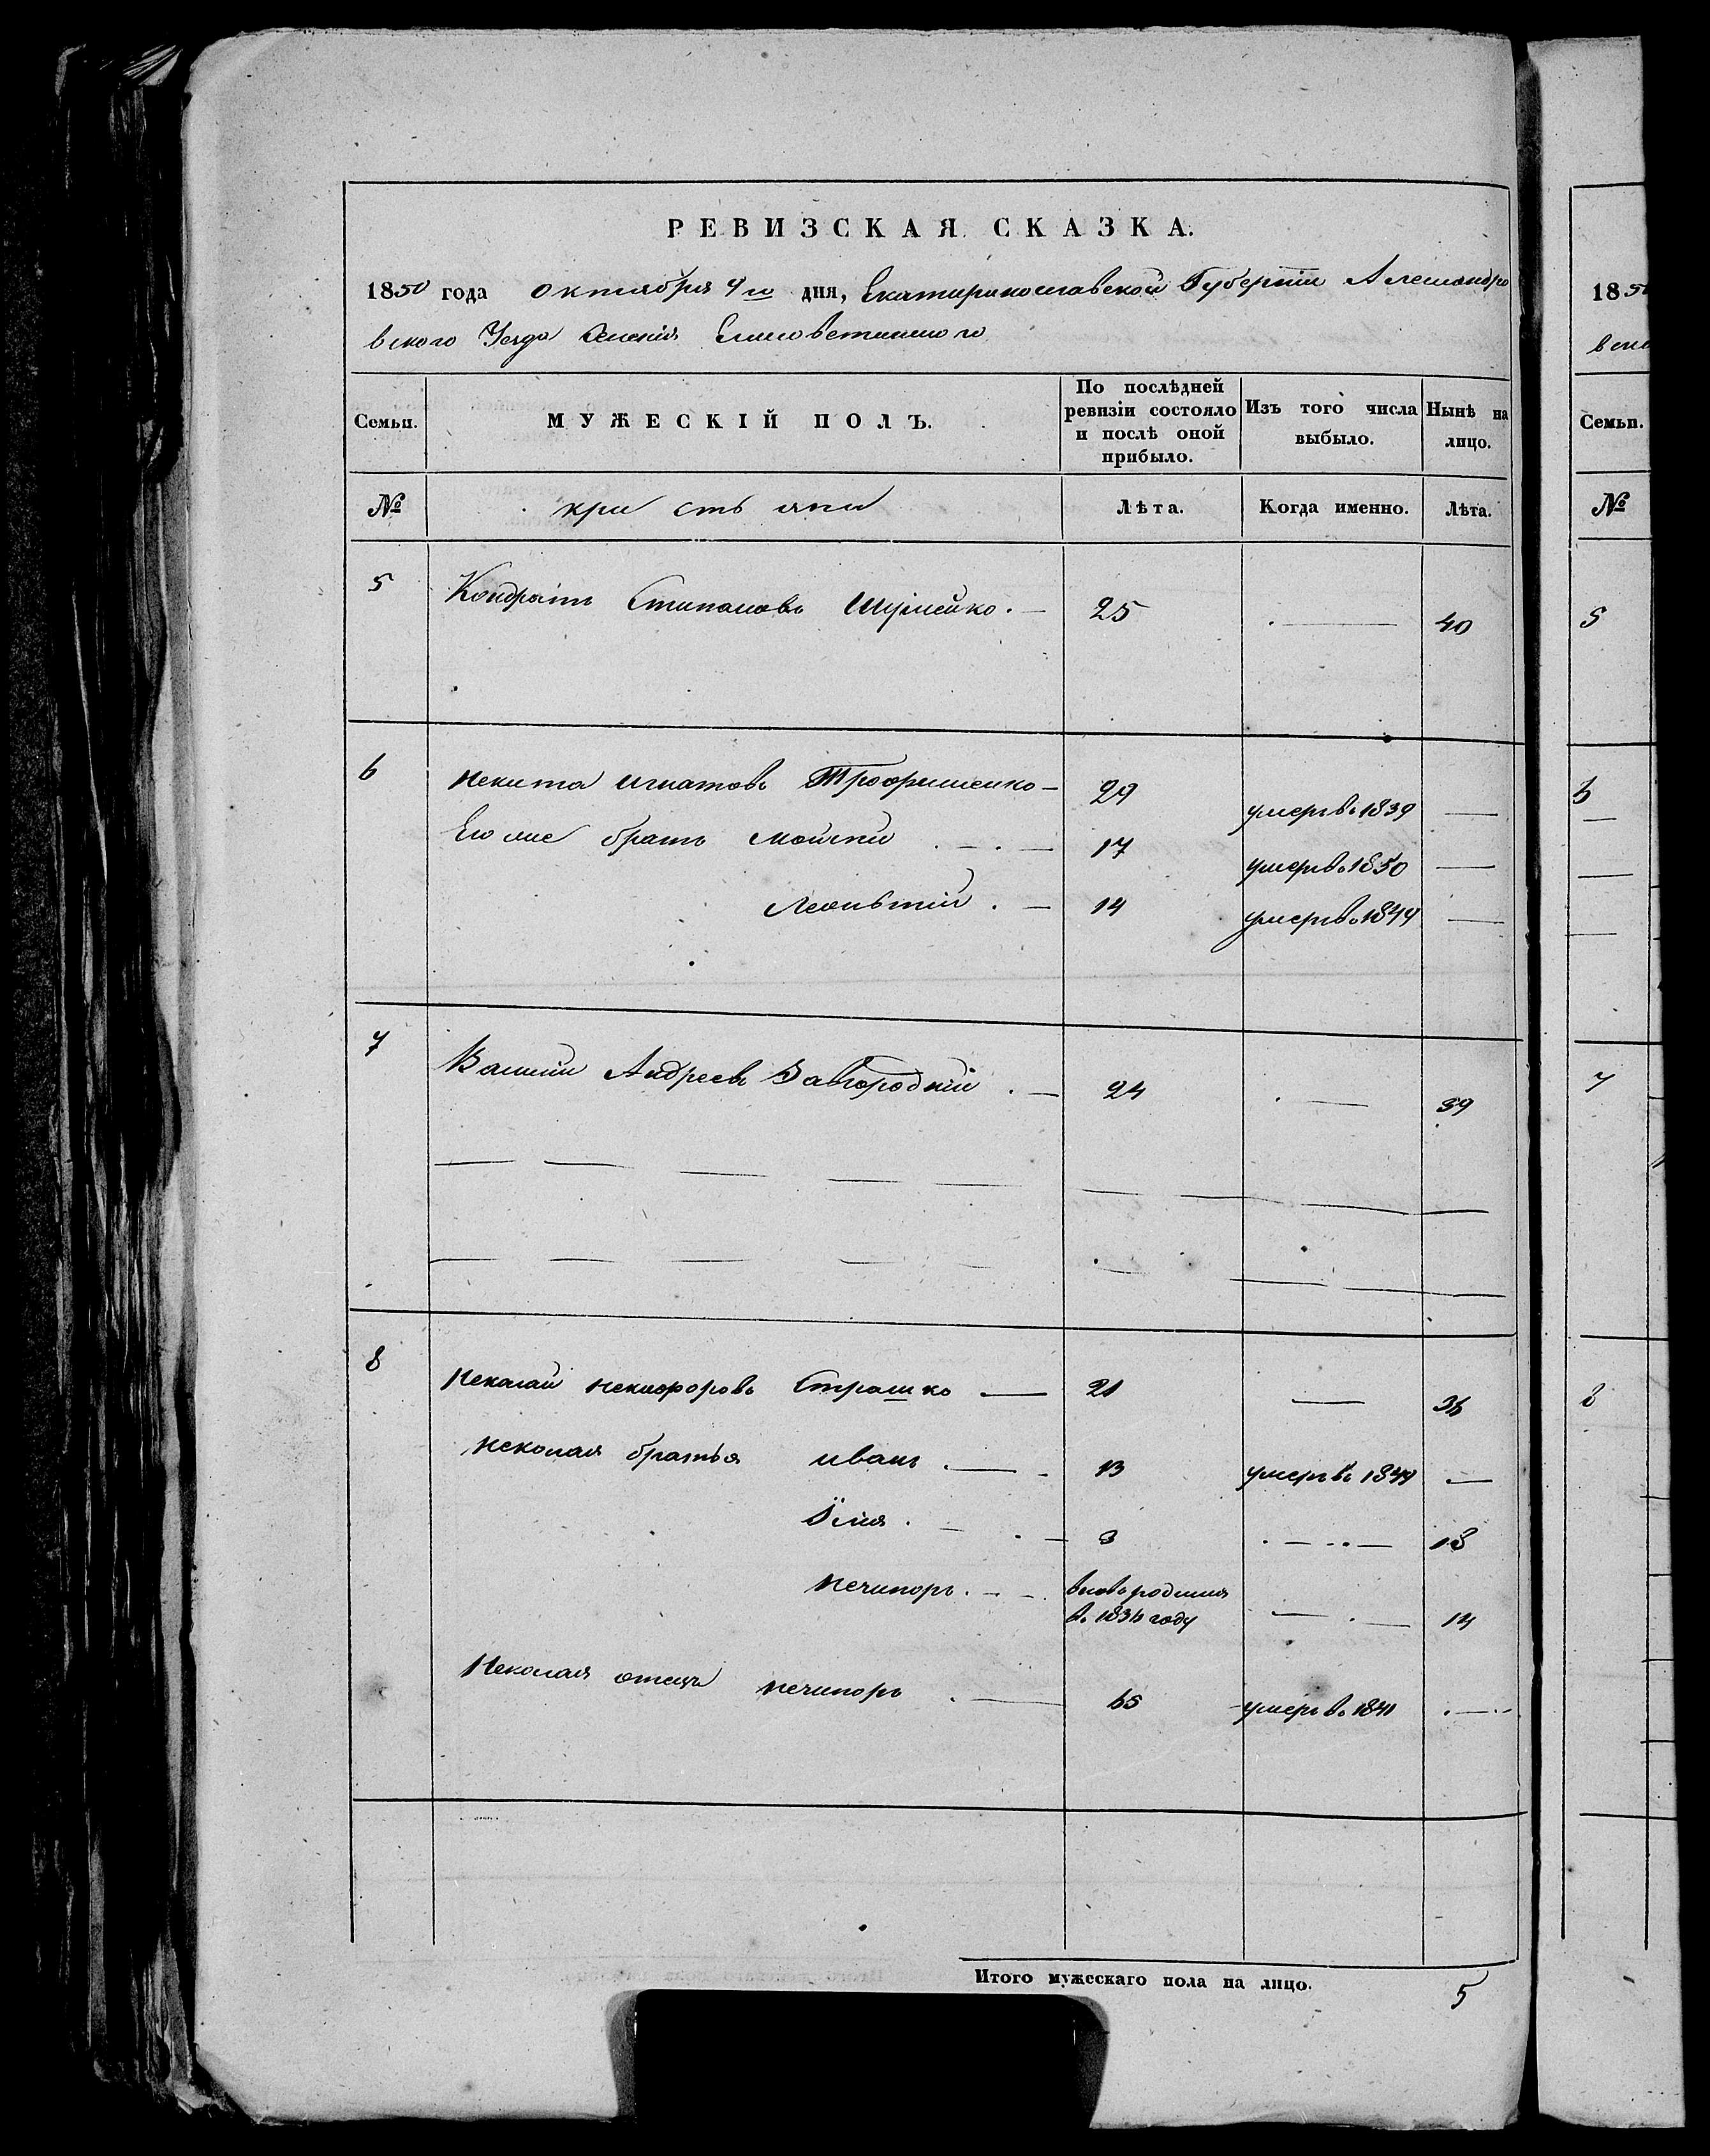 РЕВИЗСКАЯ СКАЗКА.
1850 года октября 9го дня, Екатеринославской Губерніи Алешандро
вского Уезда Селенія
Семьи. МУЖЕСКІЙ ПОЛЪ. По послѣдней ревизіи состояло и послѣ оной прибыло. Изъ того числа выбыло. Нынѣ на лицо.
№ кристьяни Лѣта. Когда именно. Лѣта.
5 Кондратъ Стипановъ Шумейко. 25 — 40
6 Некита Игнатовъ Трофименко 29 умеръ въ 1839 —
Его же братъ 17 умеръ въ 1850 —
Леоньтій 14 умеръ въ 1849 —
7 Андреевъ Завгородній 24 — 39
8 Неколай Некифоровъ Страшко 21 — 36
Неколая братья иванъ 13 умеръ въ 1849 —
Їлия 3 — 18
Нечипоръ вновь родился
в. 1836 году — 14
Неколая отецъ Нечипоръ 65 умеръ въ 1841 —
Итого мужескаго пола на лицо. 5
1850
вско
Семьи.
№
5
6
7
8